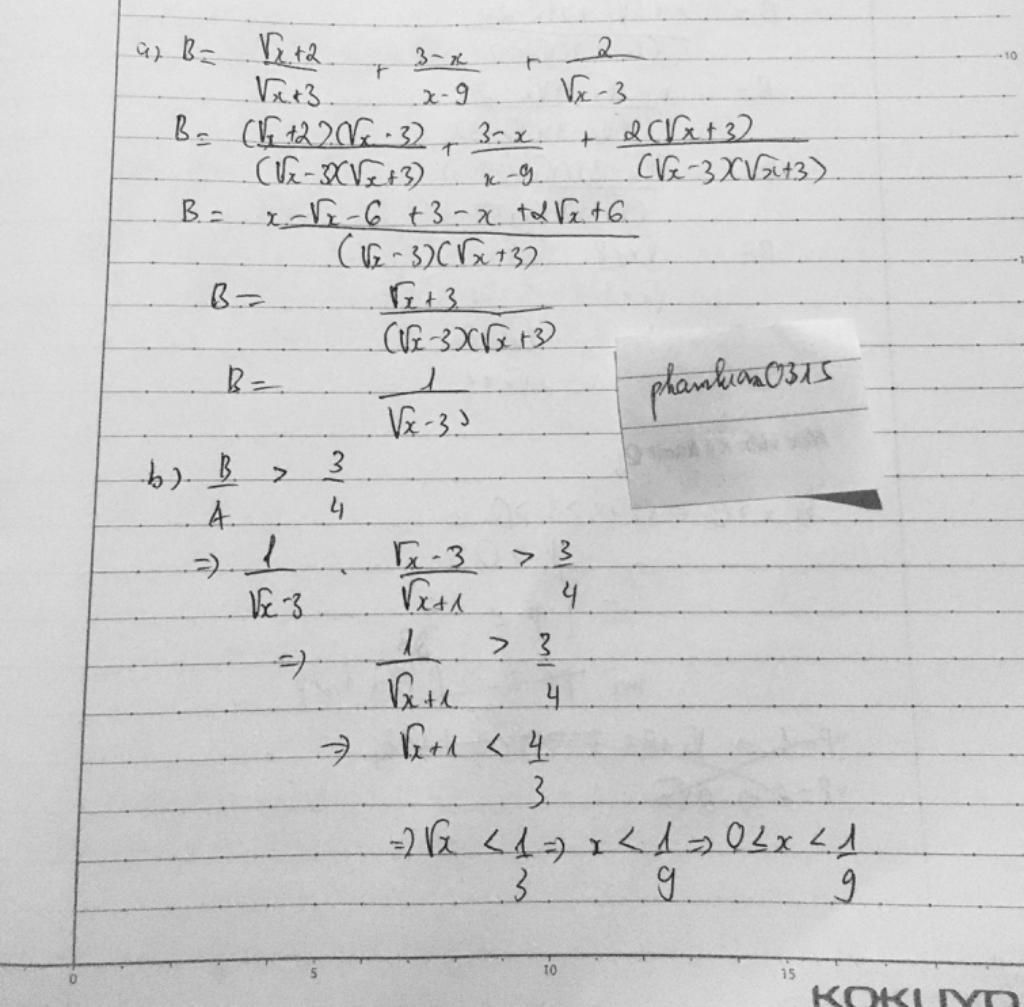 a, B = (√x+2)/(√x+3) + (3-x)/(x-9) + 2/(√x-3)
B = (√x+2)(√x-3)/(√x-3)(√x+3) + (3-x)/(x-9) + 2(√x+3)/(√x-3)(√x+3)
B = (x-√x-6+3-x+2√x+6)/(√x-3)(√x+3)
B = (√x+3)/(√x-3)(√x+3)
B = 1/(√x-3)
phamluan0315
b) B/A > 3/4
=> 1/(√x-3) . (√x-3)/(√x+1) > 3/4
=> 1/(√x+1) > 3/4
=> √x+1 < 4/3
=> √x < 1/3 => x < 1/9 => 0 ≤ x < 1/9
0 5 10 15
10
KOKUYO